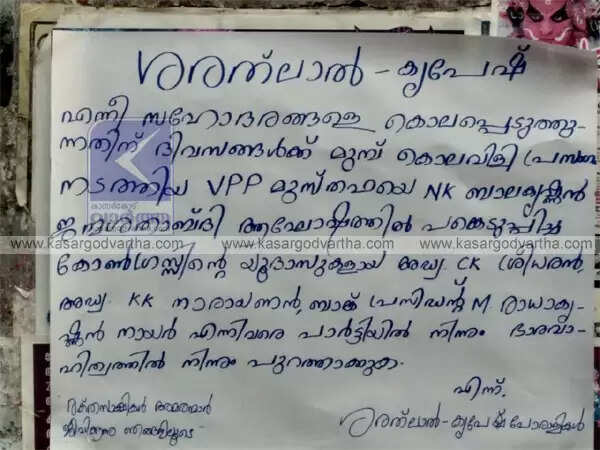 ശരത്‌ലാൽ - കൃപേഷ്
എന്നീ സഹോദരങ്ങളെ കൊലപ്പെടുത്തു-
ന്നതിന് ദിവസങ്ങൾക്ക് മുമ്പ് കൊലവിളി പ്രസംഗം
നടത്തിയ VPP മുസ്തഫയെ NK ബാലകൃഷ്ണൻ
ജന്മശതാബ്ദി ആഘോഷത്തിൽ പങ്കെടുപ്പിച്ച
www.kasargodvartha.com www.kasargodvartha.com www.kasargodvartha.com
കോൺഗ്രസ്സിന്റെ യൂദാസുകളായ അഡ്വ. CK ശ്രീധരൻ,
അഡ്വ. KK നാരായണൻ, ബാങ്ക് പ്രസിഡന്റ് M. രാധാകൃ-
ഷ്ണൻ നായർ എന്നിവരെ പാർട്ടിയിൽ നിന്നും ഭാരവാ-
ഹിത്വത്തിൽ നിന്നും പുറത്താക്കുക.
എന്ന്,
രക്തസാക്ഷികൾ അമരന്മാർ
ജീവിക്കുന്നു ഞങ്ങളിലൂടെ
ശരത്‌ലാൽ - കൃപേഷ് പോരാളികൾ
കാസർകോട്
വാർത്ത